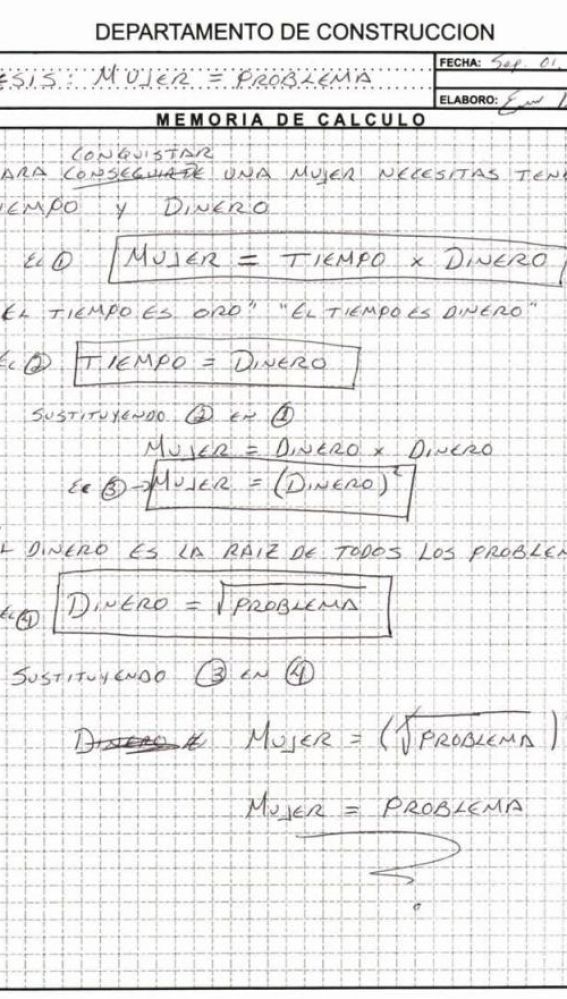 DEPARTAMENTO DE CONSTRUCCION
ESIS: MUJER = PROBLEMA
FECHA: Sep. 01,
ELABORO:
MEMORIA DE CALCULO
CONQUISTAR
ARA CONSEGUIRTE UNA MUJER NECESITAS TENE
IEMPO Y DINERO
EC ① MUJER = TIEMPO x DINERO
EL TIEMPO ES ORO" "EL TIEMPO ES DINERO"
EC ② TIEMPO = DINERO
SUSTITUYENDO ② EN ①
MUJER = DINERO x DINERO
EC ③ → MUJER = (DINERO)²
L DINERO ES LA RAIZ DE TODOS LOS PROBLEM
EC ④ DINERO = √PROBLEMA
SUSTITUYENDO ③ EN ④
DINERO MUJER = (√PROBLEMA)
MUJER = PROBLEMA